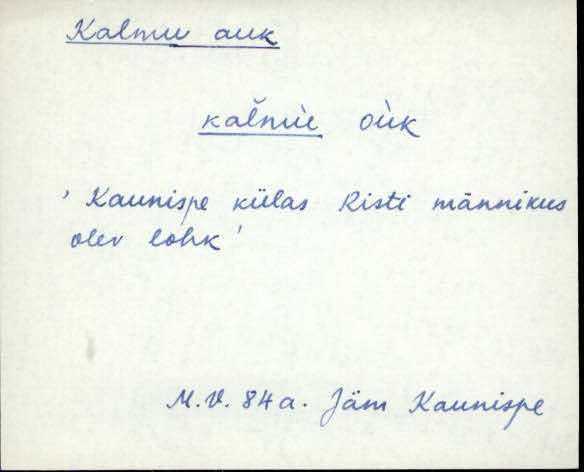 Kalmu auk
kal̆mù̀e où̀k
' Kaunispe külas Risti männikus
olev lohk '
M.V. 84a. Jäm Kaunispe